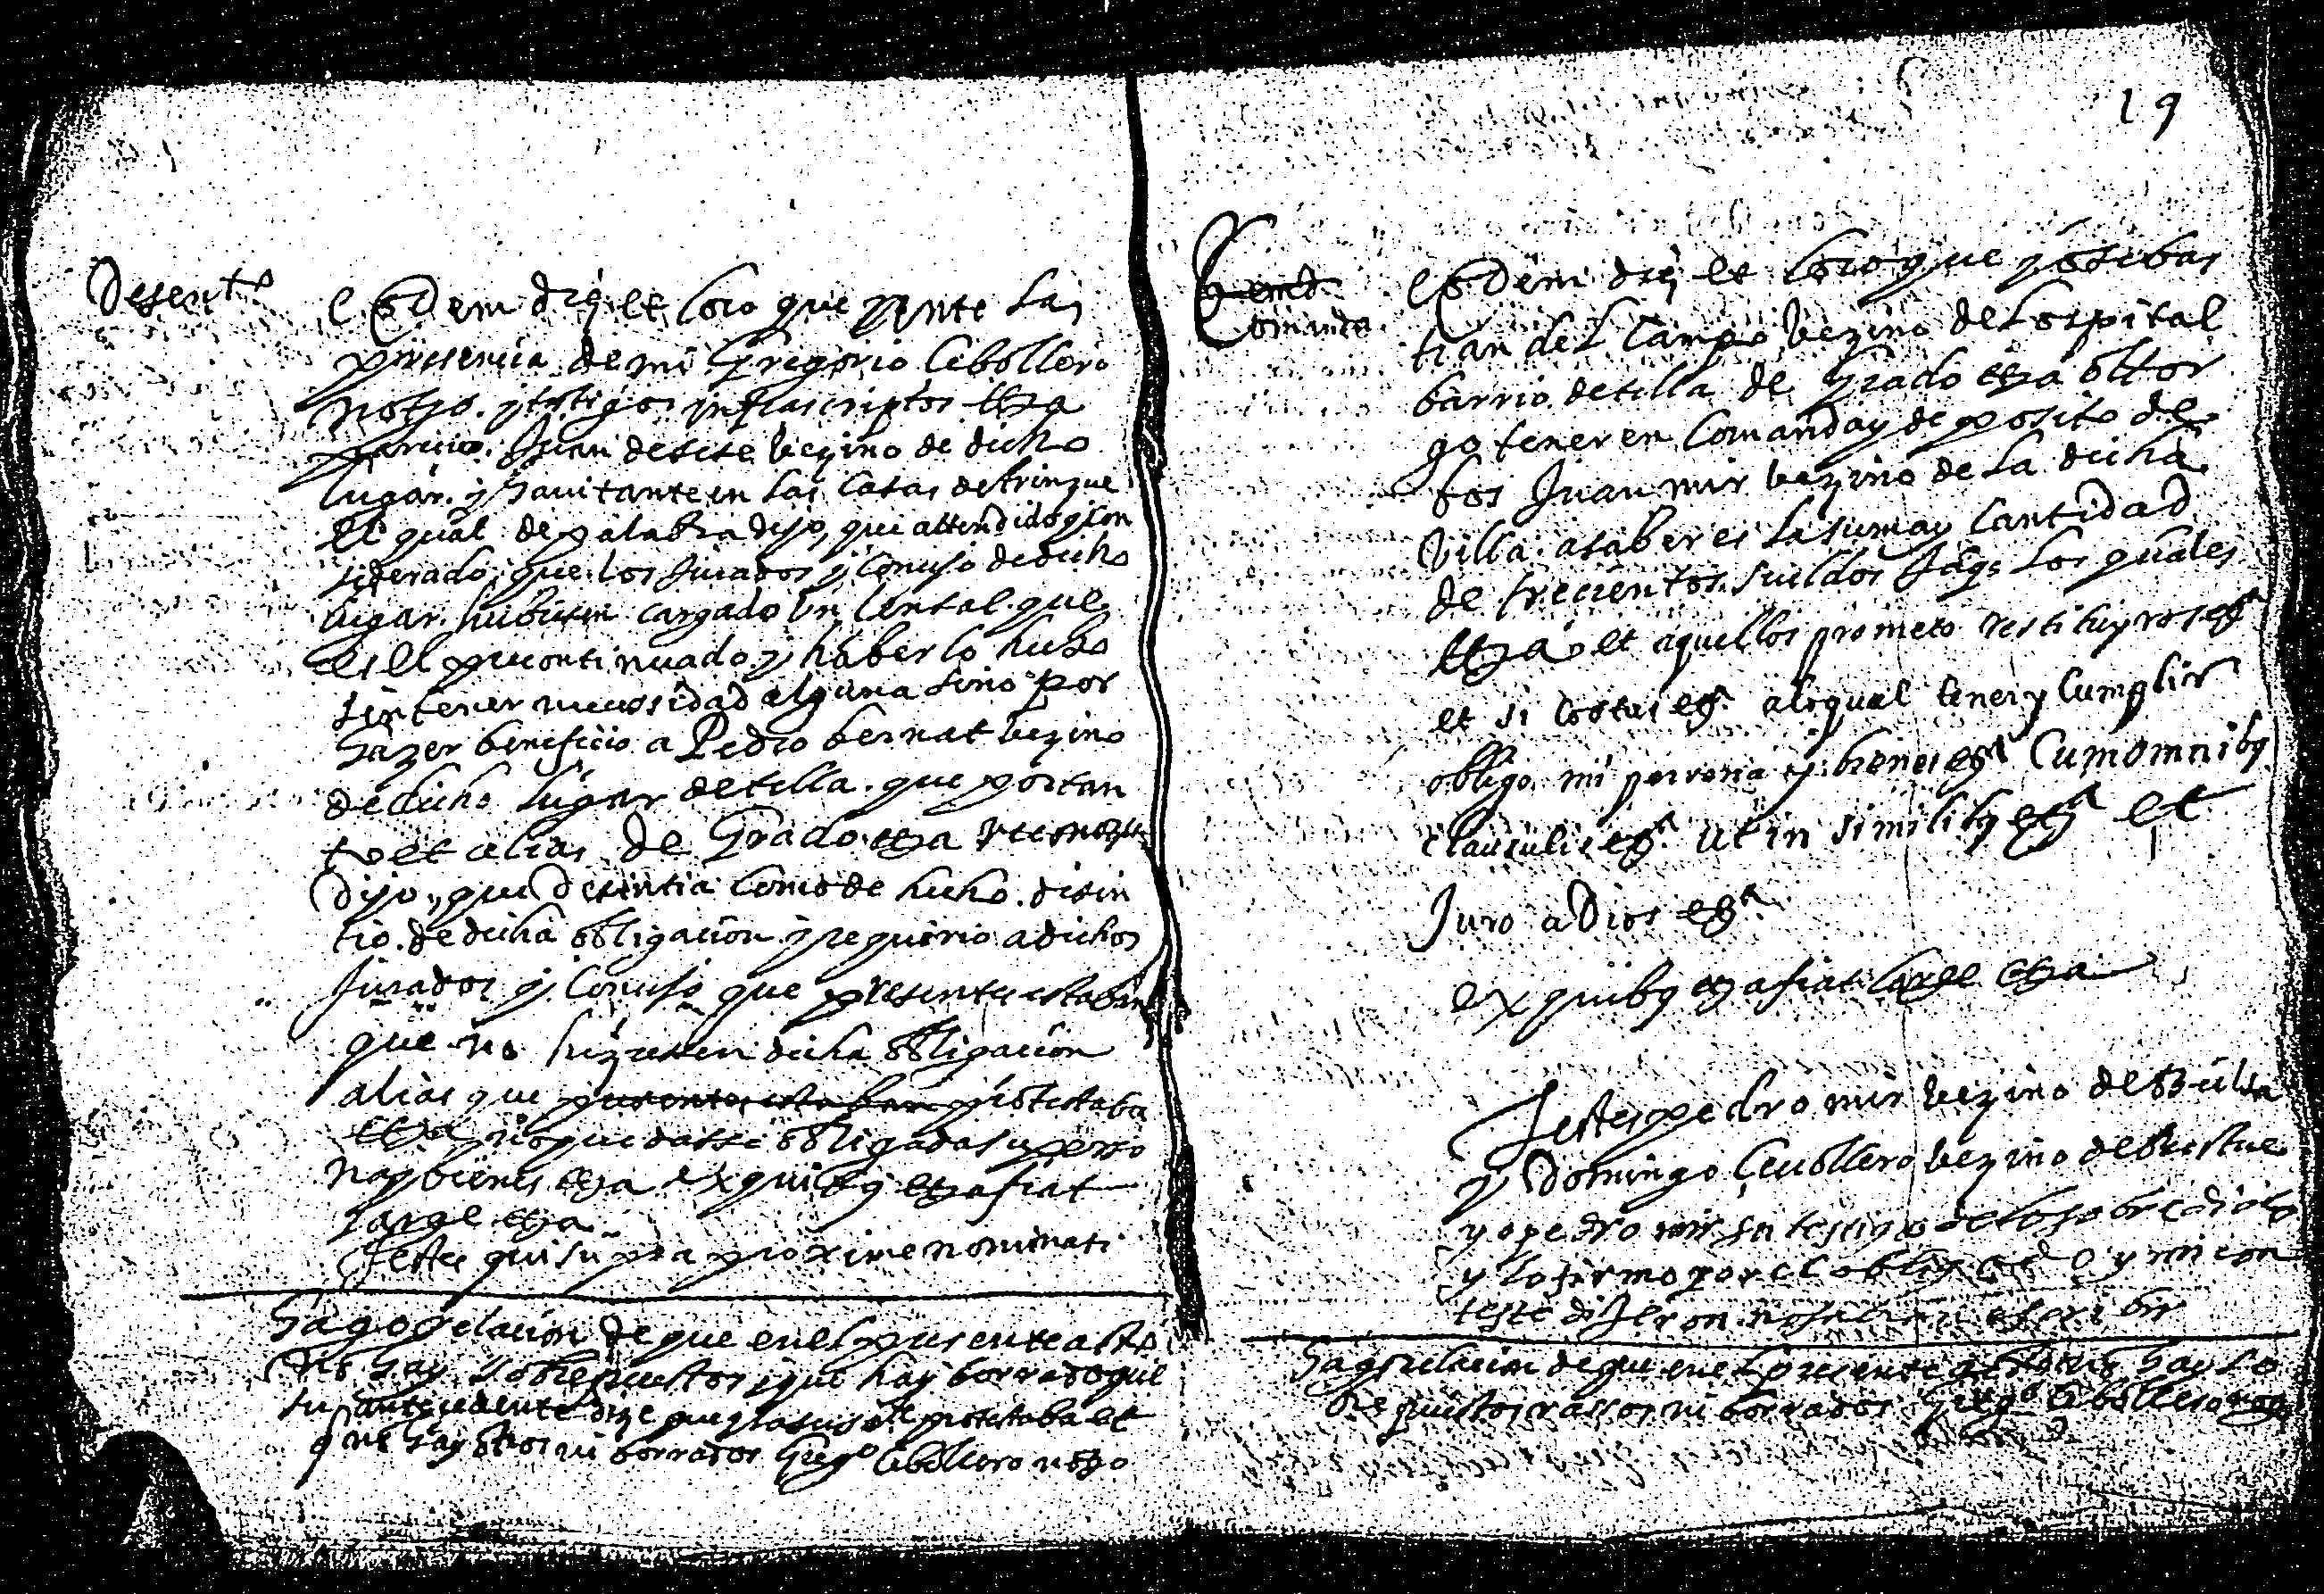 Desent.to
Eodem die et loco que Ante la
presencia de mi Gregorio Cebollero
notro. y testigos infrascriptos etza
parecio. Juan de sese vezino de dicho
lugar. y havitante en las Casas de trinque
El qual de palabra dijo, que attendido y con
siderado, que los Jurados y Concejo de dicho
lugar. hubiesen cargado un Censal que
es el precontinuado y haberlo hecho
sin tener necessidad alguna sino por
hazer beneficio a Pedro bernat vezino
de dicho lugar de tilla. que portan
to et alias de Grado etza
Dijo, que desintia como de hecho. disin
tio. de dicha obligacion y requirio a dichos
Jurados y Concejo que presentes estaban
que no hiziesen dicha obligacion
alias que presentes estaban protestaba
etza no quedasse obligada su perso
na y bienes etza ex quibus etza fiat
large etza
Testes qui supra proxime nominati
Hago relacion de que en el presente acto
no hay sobrepuestos y que hay borrado que
su antecedente dize que y la suso protestaba et
q no hay otros ni borrados Grego Cebollero notro
19
Comanda.
Eodem die et loco que yo sebas
tian del Campo vezino del ospital
barrio de tilla de grado etza ottor
go tener en Comanda y deposito de
bos Juan mir vezino de la dicha
Villa. a saber es la suma y Cantidad
de trecientos. sueldos Jaqs. los quales
etza et aquellos prometo restituyros etza
et si costas etza. a lo qual tener y Cumplir
obligo mi persona y bienes etza Cum omnibus
clausulis etza. ut in similibus etza et
Juro a Dios etza
ex quibus etza fiat large etza
Testes pedro mir vezino de
y Domingo Cevollero vezino de
yo pedro mir soy testigo de lo sobredicho
y lo firmo por el obligado y mi con
teste dijeron no sabian escribir
Hago relacion de que en el presente acto no hay so
brepuestos rassos ni borrados Grego Cebollero notro